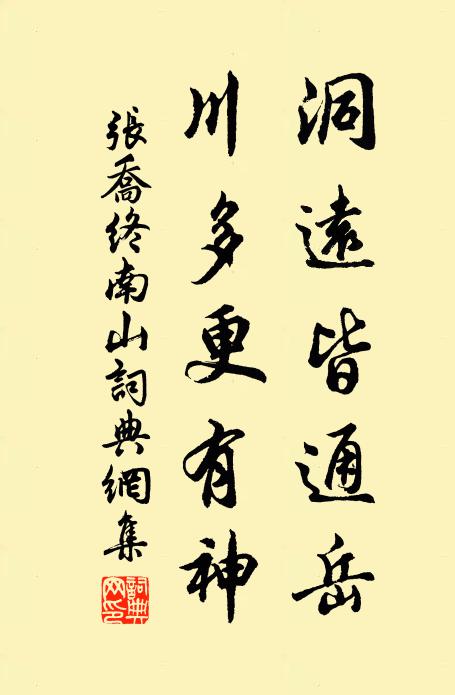 洞遠皆通岳
川多更有神
張喬終南山詞典網集
詞典网印